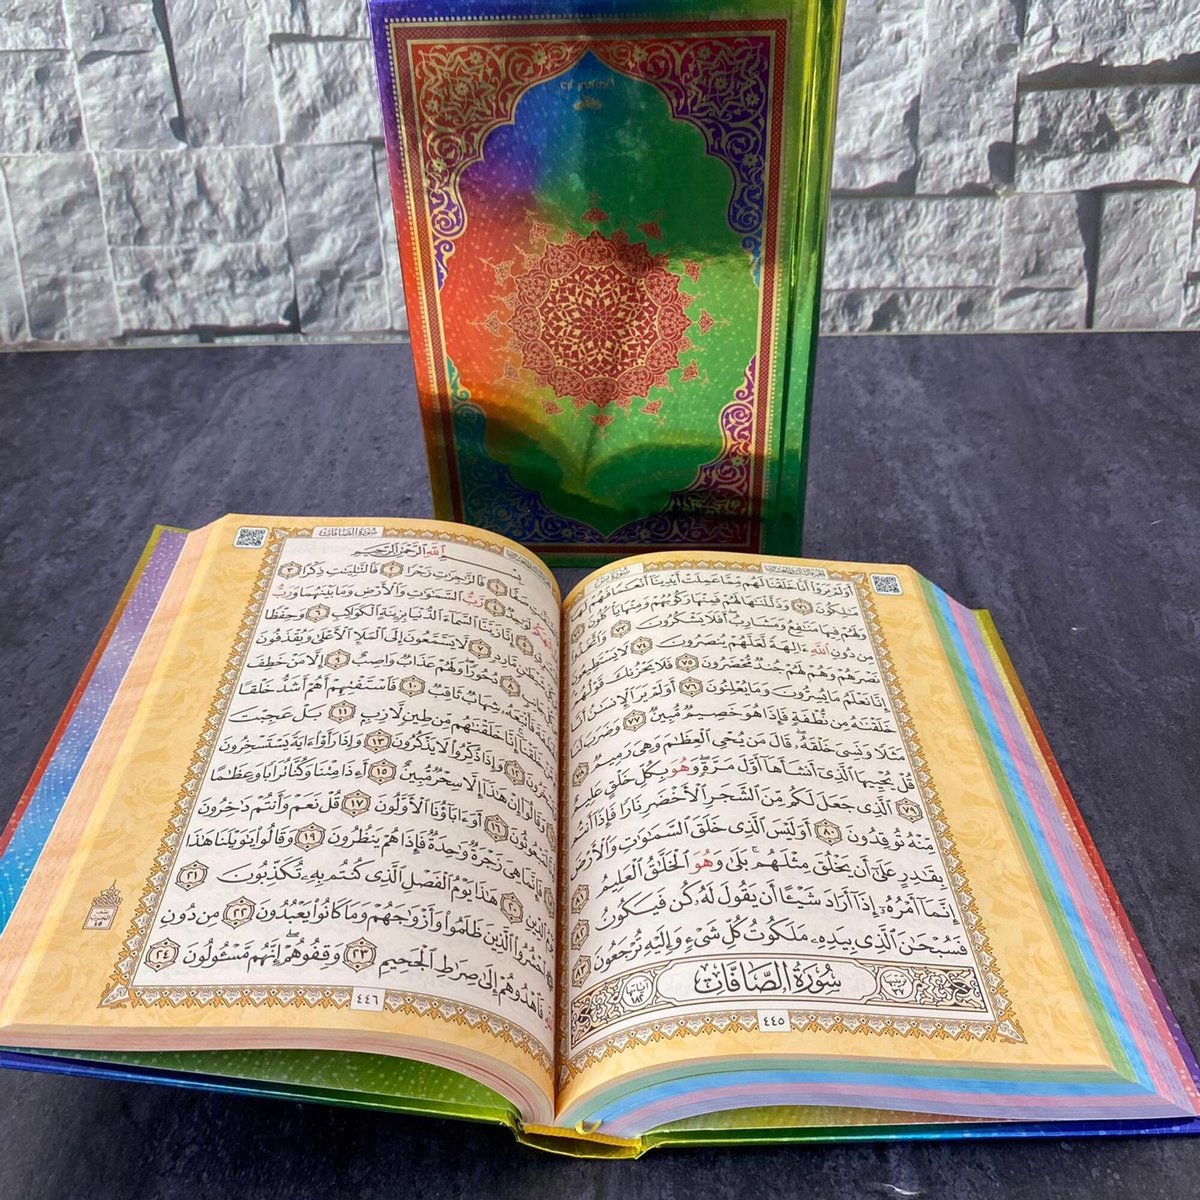 سُورَةُ يسٓ
أَوَلَمْ يَرَوْا۟ أَنَّا خَلَقْنَا لَهُم مِّمَّا عَمِلَتْ أَيْدِينَآ أَنْعَـٰمًا فَهُمْ لَهَا
مَـٰلِكُونَ ٧١ وَذَلَّلْنَـٰهَا لَهُمْ فَمِنْهَا رَكُوبُهُمْ وَمِنْهَا يَأْكُلُونَ ٧٢
وَلَهُمْ فِيهَا مَنَـٰفِعُ وَمَشَارِبُ ۖ أَفَلَا يَشْكُرُونَ ٧٣ وَٱتَّخَذُوا۟
مِن دُونِ ٱللَّهِ ءَالِهَةً لَّعَلَّهُمْ يُنصَرُونَ ٧٤ لَا يَسْتَطِيعُونَ
نَصْرَهُمْ وَهُمْ لَهُمْ جُندٌ مُّحْضَرُونَ ٧٥ فَلَا يَحْزُنكَ قَوْلُهُمْ
إِنَّا نَعْلَمُ مَا يُسِرُّونَ وَمَا يُعْلِنُونَ ٧٦ أَوَلَمْ يَرَ ٱلْإِنسَـٰنُ أَنَّا
خَلَقْنَـٰهُ مِن نُّطْفَةٍ فَإِذَا هُوَ خَصِيمٌ مُّبِينٌ ٧٧ وَضَرَبَ لَنَا
مَثَلًا وَنَسِىَ خَلْقَهُۥ ۖ قَالَ مَن يُحْىِ ٱلْعِظَـٰمَ وَهِىَ رَمِيمٌ ٧٨
قُلْ يُحْيِيهَا ٱلَّذِىٓ أَنشَأَهَآ أَوَّلَ مَرَّةٍ ۖ وَهُوَ بِكُلِّ خَلْقٍ عَلِيمٌ
٧٩ ٱلَّذِى جَعَلَ لَكُم مِّنَ ٱلشَّجَرِ ٱلْأَخْضَرِ نَارًا فَإِذَآ أَنتُم
مِّنْهُ تُوقِدُونَ ٨٠ أَوَلَيْسَ ٱلَّذِى خَلَقَ ٱلسَّمَـٰوَٰتِ وَٱلْأَرْضَ
بِقَـٰدِرٍ عَلَىٰٓ أَن يَخْلُقَ مِثْلَهُم ۚ بَلَىٰ وَهُوَ ٱلْخَلَّـٰقُ ٱلْعَلِيمُ ٨١
إِنَّمَآ أَمْرُهُۥٓ إِذَآ أَرَادَ شَيْـًٔا أَن يَقُولَ لَهُۥ كُن فَيَكُونُ ٨٢
فَسُبْحَـٰنَ ٱلَّذِى بِيَدِهِۦ مَلَكُوتُ كُلِّ شَىْءٍ وَإِلَيْهِ تُرْجَعُونَ ٨٣
سُورَةُ الصَّافَّاتِ
ترتيبها ٣٧
آياتها ١٨٢
٤٤٥
سُورَةُ الصَّافَّاتِ
بِسْمِ ٱللَّهِ ٱلرَّحْمَـٰنِ ٱلرَّحِيمِ
صَفًّا ١ فَٱلزَّٰجِرَٰتِ زَجْرًا ٢ فَٱلتَّـٰلِيَـٰتِ ذِكْرًا ٣
لَوَٰحِدٌ ٤ رَّبُّ ٱلسَّمَـٰوَٰتِ وَٱلْأَرْضِ وَمَا بَيْنَهُمَا وَرَبُّ
٥ إِنَّا زَيَّنَّا ٱلسَّمَآءَ ٱلدُّنْيَا بِزِينَةٍ ٱلْكَوَاكِبِ ٦ وَحِفْظًا
مَّارِدٍ ٧ لَّا يَسَّمَّعُونَ إِلَى ٱلْمَلَإِ ٱلْأَعْلَىٰ وَيُقْذَفُونَ
جَانِبٍ ٨ دُحُورًا ۖ وَلَهُمْ عَذَابٌ وَاصِبٌ ٩ إِلَّا مَنْ خَطِفَ
فَأَتْبَعَهُۥ شِهَابٌ ثَاقِبٌ ١٠ فَٱسْتَفْتِهِمْ أَهُمْ أَشَدُّ خَلْقًا
خَلَقْنَآ ۚ إِنَّا خَلَقْنَـٰهُم مِّن طِينٍ لَّازِبٍۭ ١١ بَلْ عَجِبْتَ
١٢ وَإِذَا ذُكِّرُوا۟ لَا يَذْكُرُونَ ١٣ وَإِذَا رَأَوْا۟ ءَايَةً يَسْتَسْخِرُونَ
وَقَالُوٓا۟ إِنْ هَـٰذَآ إِلَّا سِحْرٌ مُّبِينٌ ١٥ أَءِذَا مِتْنَا وَكُنَّا تُرَابًا وَعِظَـٰمًا
لَمَبْعُوثُونَ ١٦ أَوَءَابَآؤُنَا ٱلْأَوَّلُونَ ١٧ قُلْ نَعَمْ وَأَنتُمْ دَٰخِرُونَ
فَإِنَّمَا هِىَ زَجْرَةٌ وَٰحِدَةٌ فَإِذَا هُمْ يَنظُرُونَ ١٩ وَقَالُوا۟ يَـٰوَيْلَنَا هَـٰذَا
ٱلدِّينِ ٢٠ هَـٰذَا يَوْمُ ٱلْفَصْلِ ٱلَّذِى كُنتُم بِهِۦ تُكَذِّبُونَ ٢١
ٱحْشُرُوا۟ ٱلَّذِينَ ظَلَمُوا۟ وَأَزْوَٰجَهُمْ وَمَا كَانُوا۟ يَعْبُدُونَ ٢٢ مِن دُونِ
فَٱهْدُوهُمْ إِلَىٰ صِرَٰطِ ٱلْجَحِيمِ ٢٣ وَقِفُوهُمْ ۖ إِنَّهُم مَّسْـُٔولُونَ ٢٤
نصف الحزب ٤٥
٤٤٦